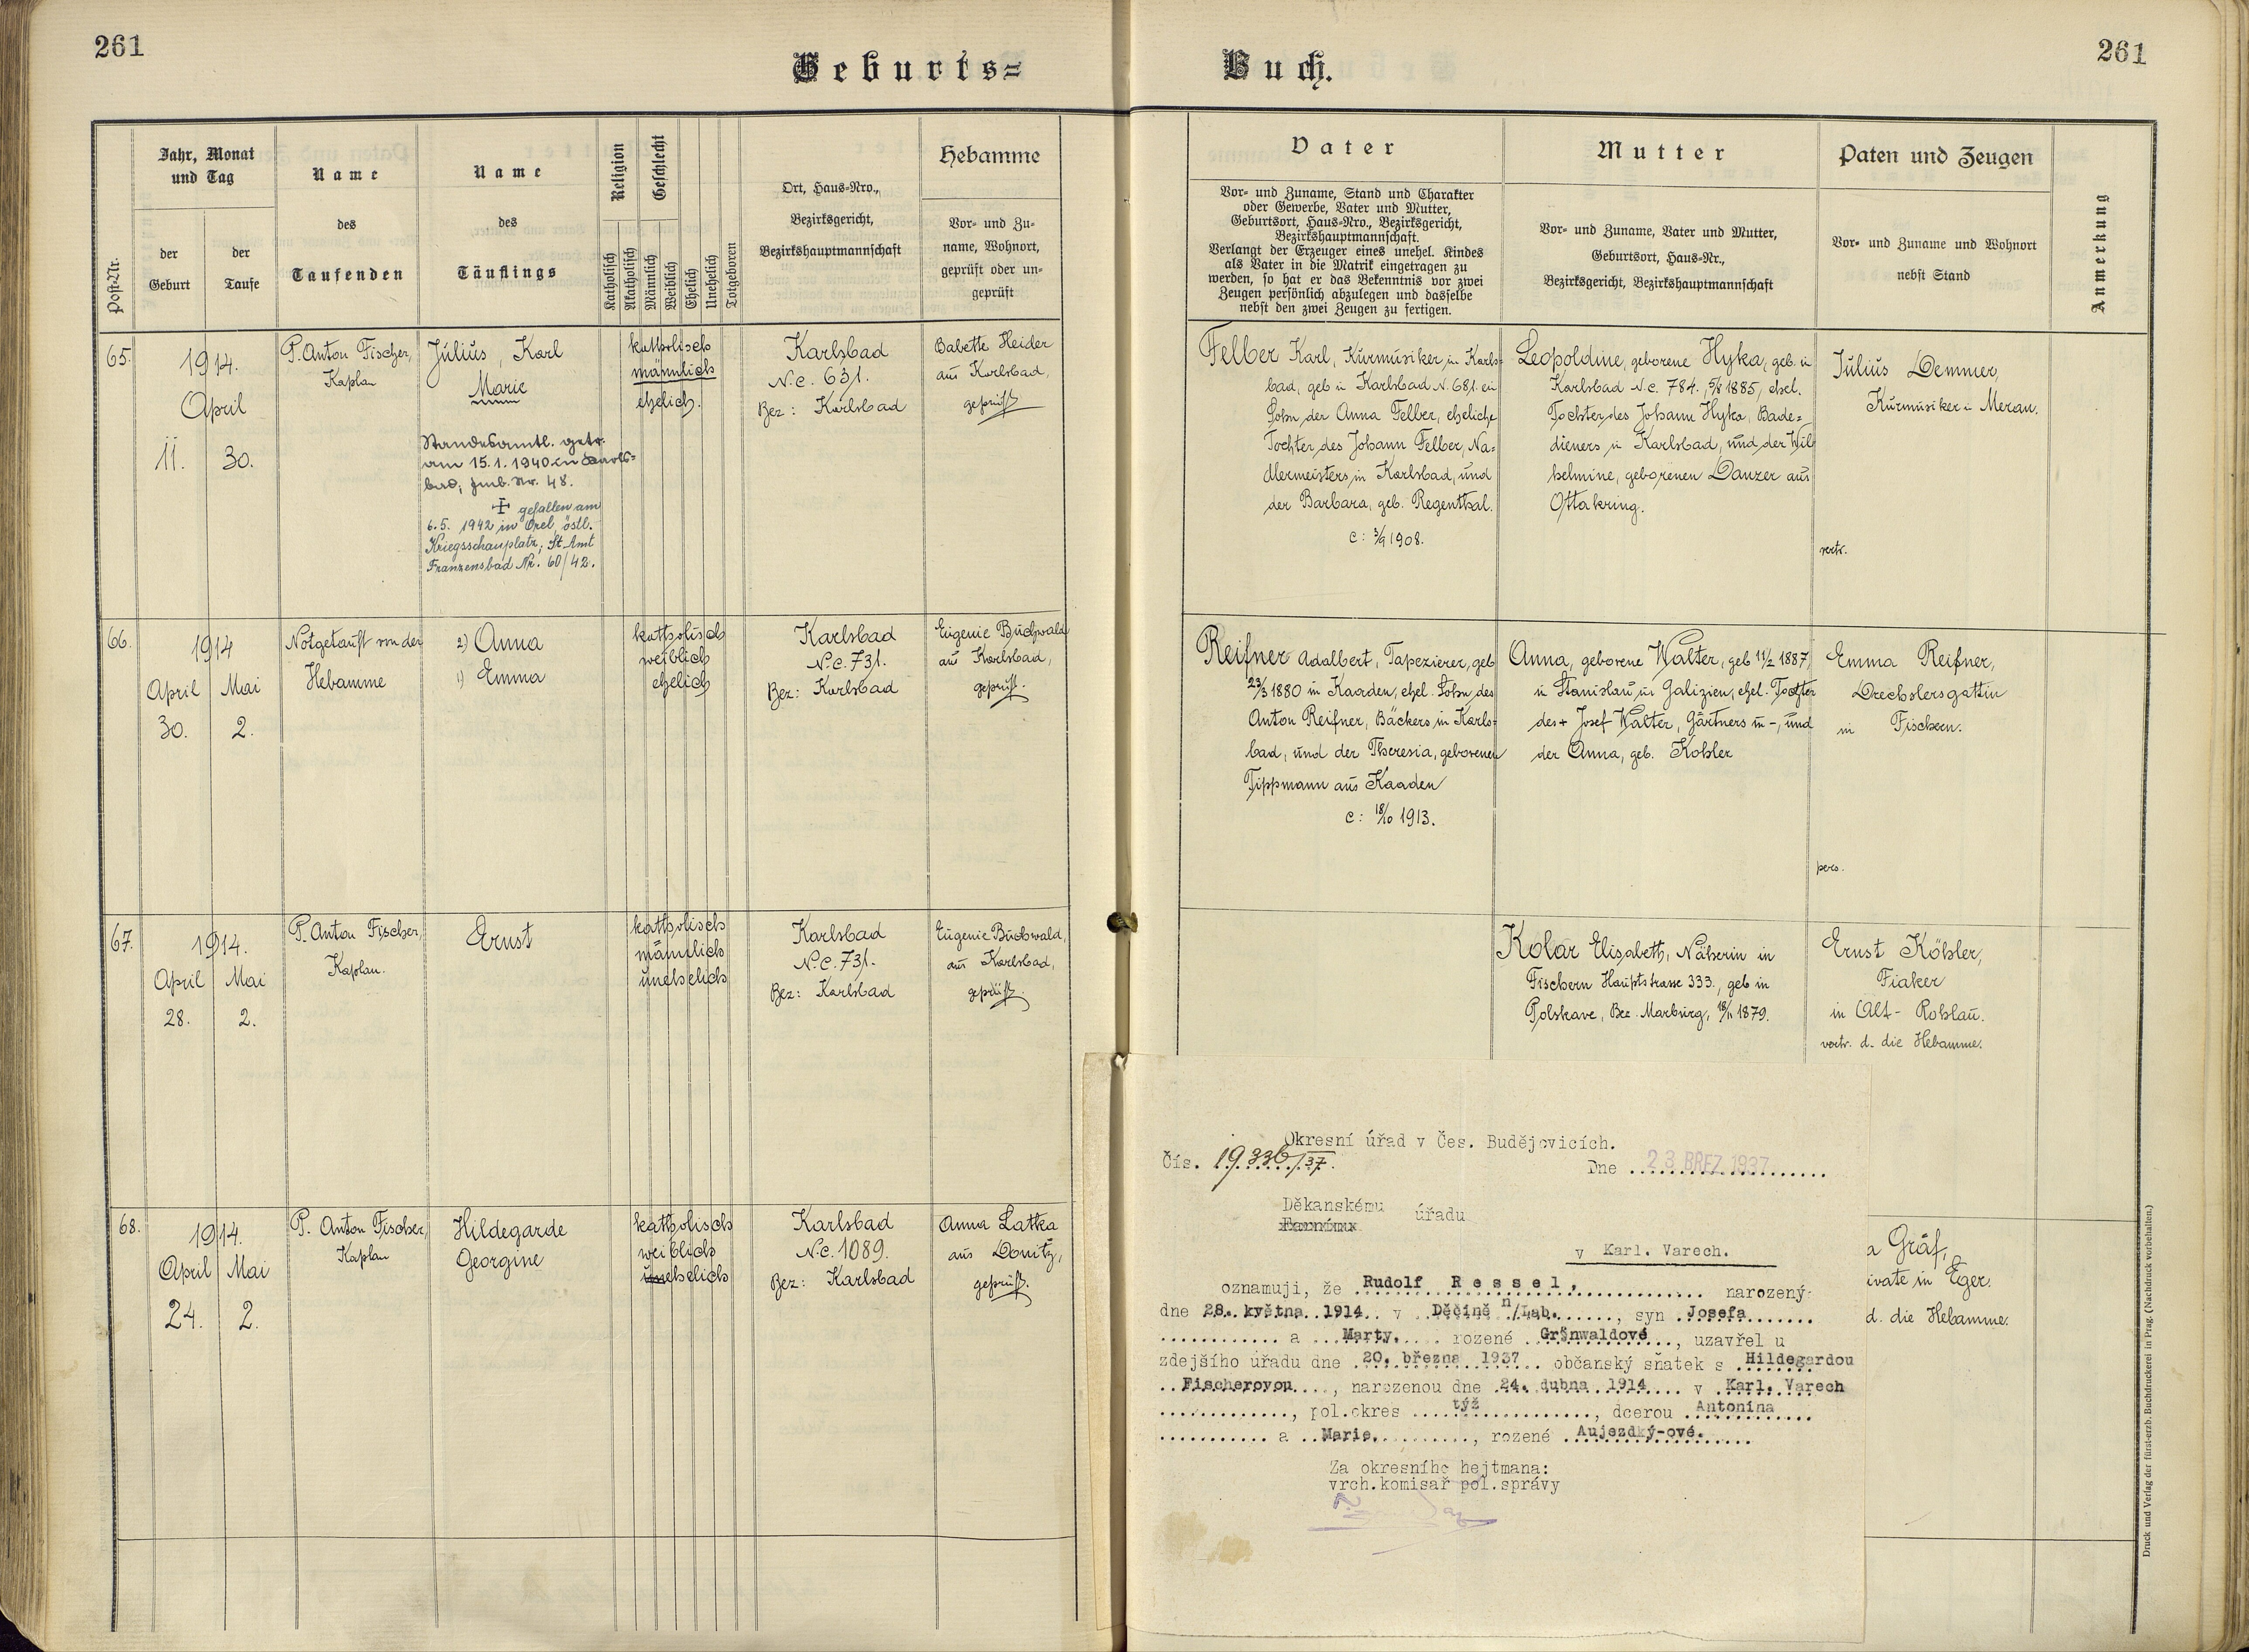 261
261
Geburts=
Buch.
Post-Nr.
Jahr, Monat
und Tag
der
Geburt
der
Taufe
Name
des
Taufenden
Name
des
Täuflings
Religion
Geschlecht
Katholisch
Akatholisch
Männlich
Weiblich
Ehelich
Unehelich
Totgeboren
Ort, Haus=Nro.,
Bezirksgericht,
Bezirkshauptmannschaft
Hebamme
Vor= und Zu=
name, Wohnort,
geprüft oder un=
geprüft
Vater
Vor= und Zuname, Stand und Charakter
oder Gewerbe, Vater und Mutter,
Geburtsort, Haus=Nro., Bezirksgericht,
Bezirkshauptmannschaft.
Verlangt der Erzeuger eines unehel. Kindes
als Vater in die Matrik eingetragen zu
werden, so hat er das Bekenntnis vor zwei
Zeugen persönlich abzulegen und dasselbe
nebst den zwei Zeugen zu fertigen.
Mutter
Vor= und Zuname, Vater und Mutter,
Geburtsort, Haus=Nr.,
Bezirksgericht, Bezirkshauptmannschaft
Paten und Zeugen
Vor= und Zuname und Wohnort
nebst Stand
Anmerkung
65.
1914.
April
11. 30.
P. Anton Fischer,
Kaplan
Julius, Karl
Marie
Standesamtl. getr.
am 15.1.1940 in Karls=
bad, Fmb. Nr. 48.
gefallen am
6.5. 1942 in Orel, östl.
Kriegsschauplatz; St. Amt
Franzensbad Nr. 60/42.
katholisch
männlich
ehelich.
Karlsbad
N.C. 631.
Bez: Karlsbad
Babette Heider
aus Karlsbad,
geprüft
Felber Karl, Kurmusiker in Karls=
bad, geb in Karlsbad N. 681. ein
Sohn der Anna Felber, eheliche
Tochter des Johann Felber, Na=
dlermeisters in Karlsbad, und
der Barbara, geb. Regenthal.
c: 3/9 1908.
Leopoldine, geborene Hyka, geb. in
Karlsbad N.C. 784., 5/8 1885, ehel.
Tochter des Johann Hyka, Bade=
dieners in Karlsbad, und der Wil
helmine, geborenen Danzer aus
Ottakring.
Julius Demmer,
Kurmusiker in Meran.
vertr.
66.
1914
April Mai
30. 2.
Notgetauft von der
Hebamme
2) Anna
1) Emma
katholisch
weiblich
ehelich
Karlsbad
N.C. 731.
Bez: Karlsbad
Eugenie Buchwald
aus Karlsbad,
geprüft.
Reifner Adalbert, Tapezierer, geb
23/3 1880 in Kaaden, ehel. Sohn des
Anton Reifner, Bäckers in Karls=
bad, und der Theresia, geborenen
Tippmann aus Kaaden
c: 18/10 1913.
Anna, geborene Walter, geb 11/2 1887,
in Stanislau in Galizien, ehel. Tochter
des + Josef Walter, Gärtners in -, und
der Anna, geb. Kohler
Emma Reifner,
Drechslersgattin
in Fischern.
pers.
67.
1914.
April Mai
28. 2.
P. Anton Fischer,
Kaplan.
Ernst
katholisch
männlich
unehelich
Karlsbad
N.C. 731.
Bez: Karlsbad
Eugenie Buchwald,
aus Karlsbad,
geprüft.
Kolar Elisabeth, Näherin in
Fischern Hauptstrasse 333., geb in
Polskave, Bez. Marburg, 18/11 1879.
Ernst Köhler,
Fiaker
in Alt-Rohlau.
vertr. d. die Hebamme.
68.
1914.
April Mai
24. 2.
P. Anton Fischer,
Kaplan
Hildegarde
Georgine
katholisch
weiblich
unehelich
Karlsbad
N.C. 1089.
Bez: Karlsbad
Anna Latka
aus Donitz,
geprüft.
a Gräf,
ivate in Eger.
d. die Hebamme.
Okresní úřad v Čes. Budějovicích.
Čís. 19.336/37.
Dne 23 BŘEZ. 1937
Děkanskému
Farnímu úřadu
v Karl. Varech.
oznamuji, že Rudolf Ressel, narozený
dne 28. května 1914 v Děčíně n/Lab., syn Josefa
a Marty, rozené Grünwaldové, uzavřel u
zdejšího úřadu dne 20. března 1937 občanský sňatek s Hildegardou
Fischerovou, narozenou dne 24. dubna 1914 v Karl. Varech
, pol.okres týž, dcerou Antonína
a Marie, rozené Aujezdký-ové.
Za okresního hejtmana:
vrch.komisař pol.správy
Druck und Verlag der fürst-erzb. Buchdruckerei in Prag. (Nachdruck vorbehalten.)